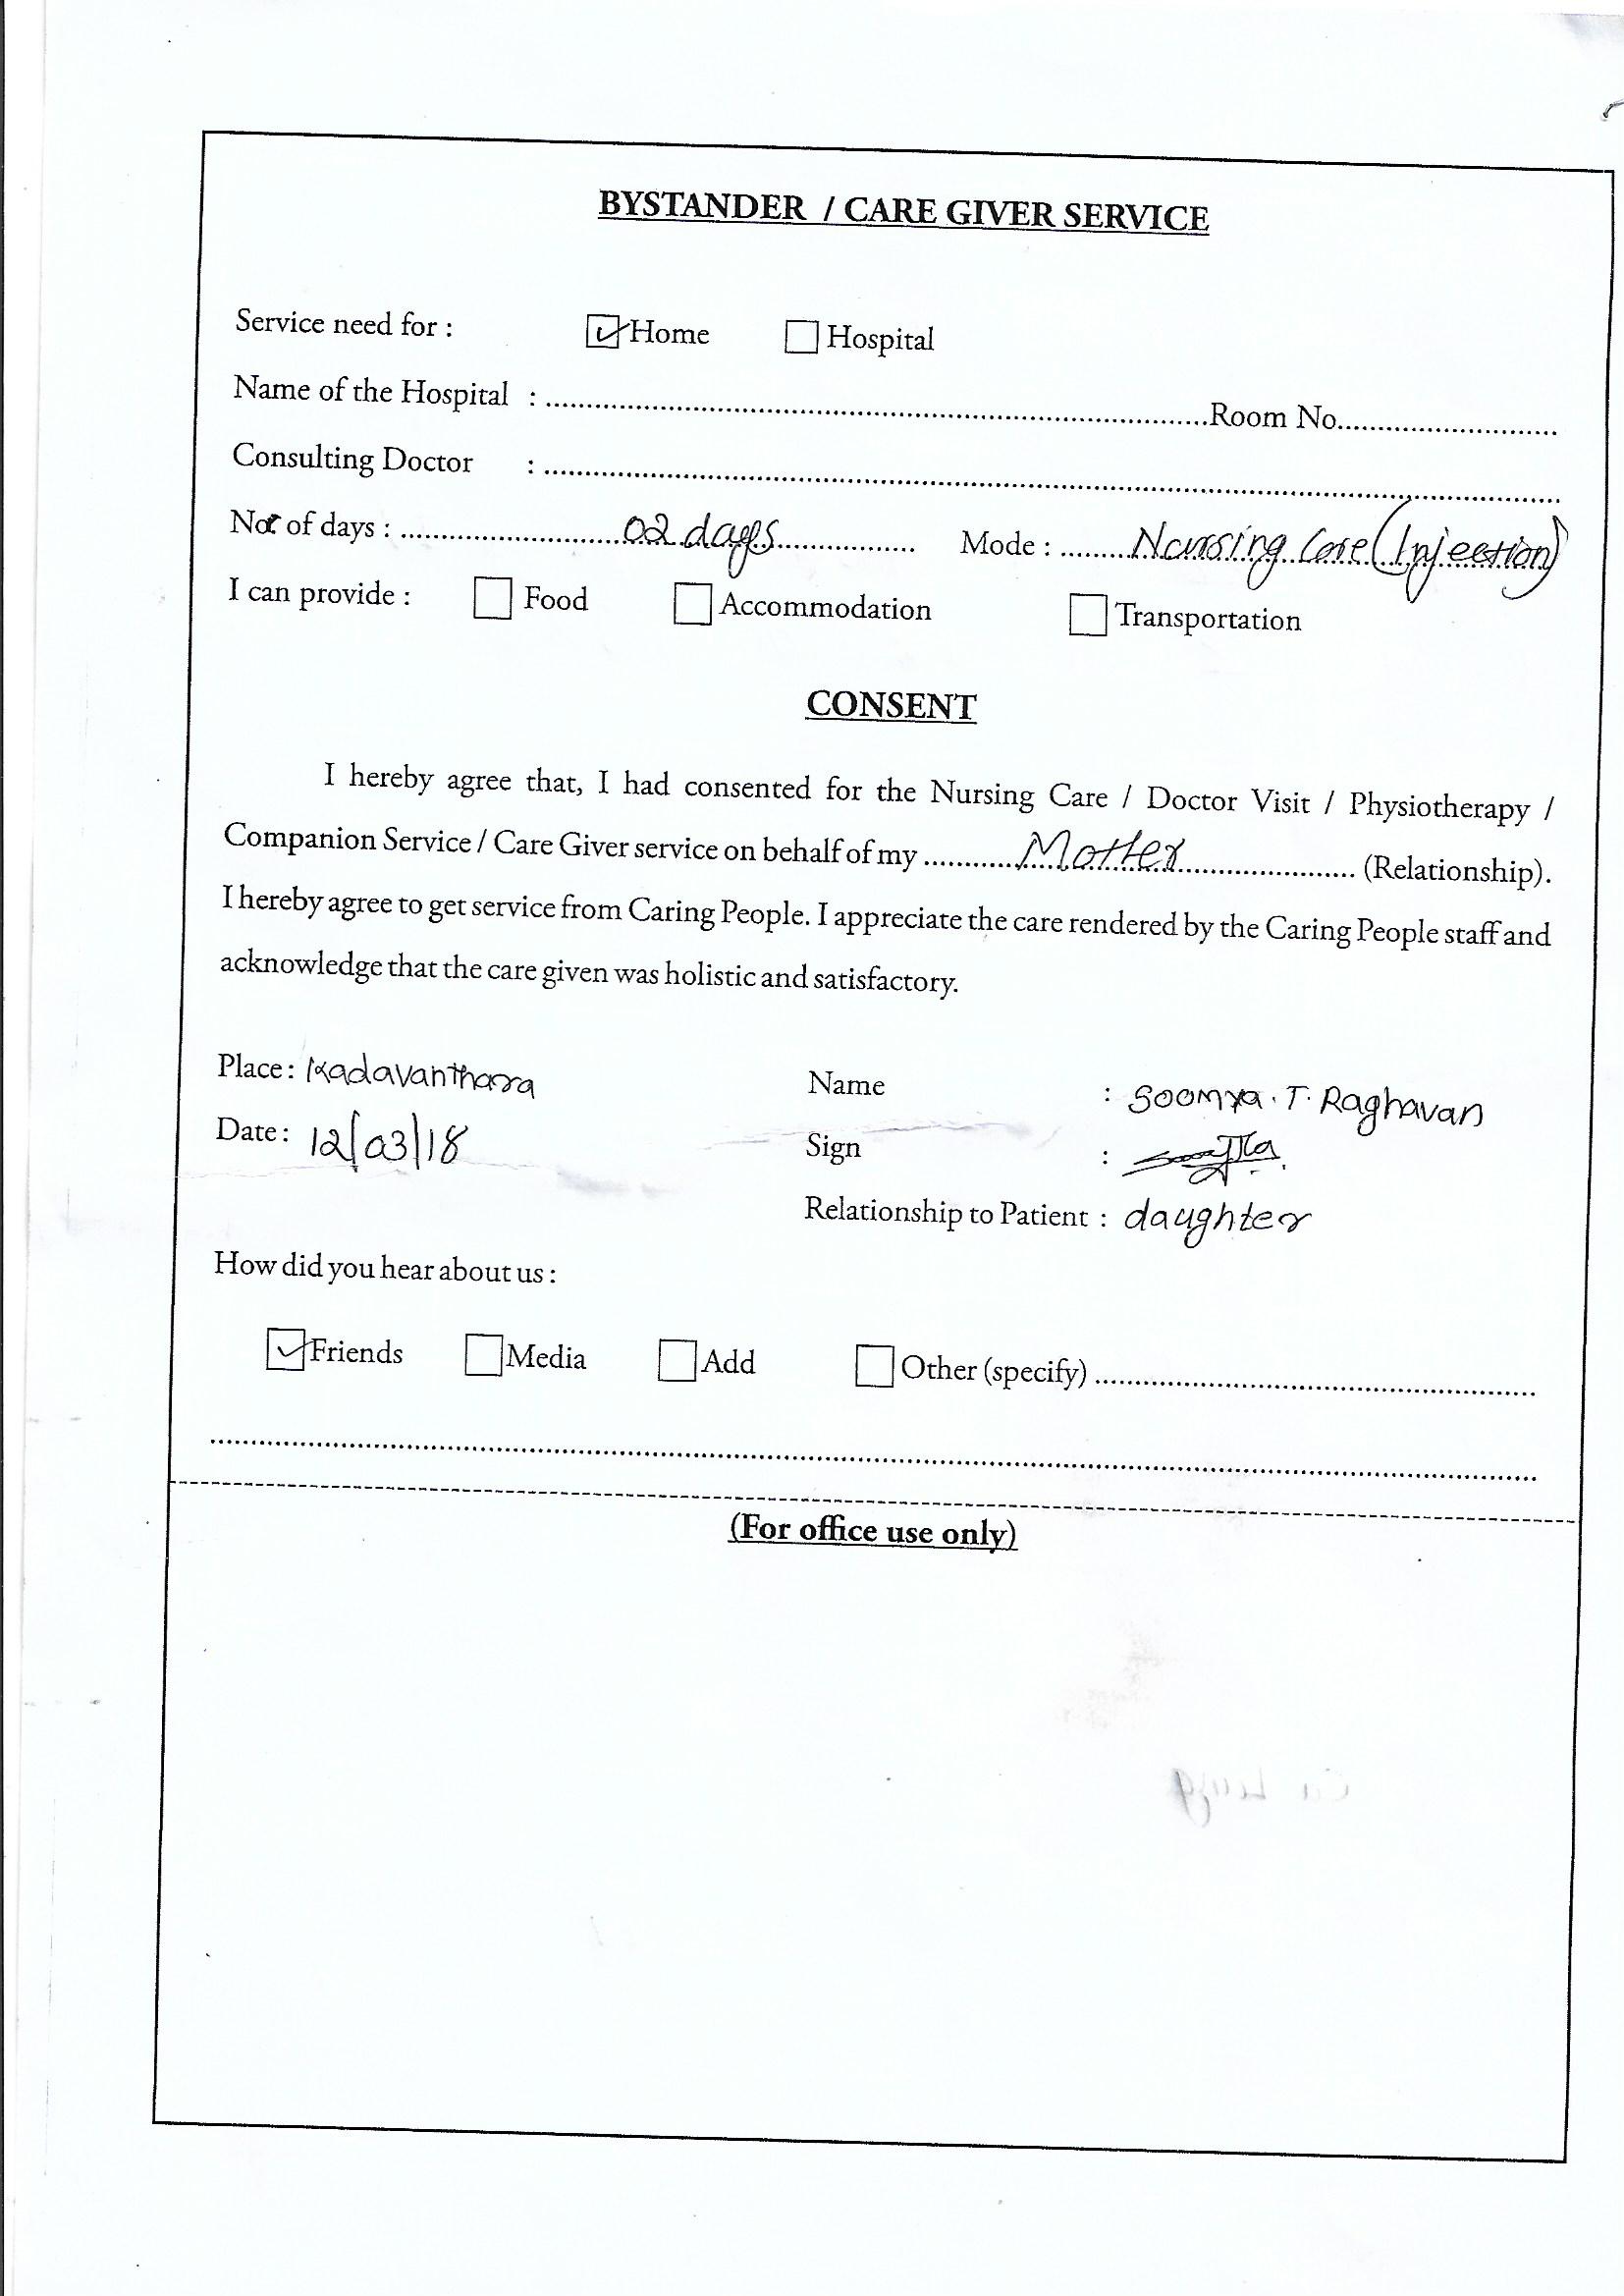 BYSTANDER / CARE GIVER SERVICE
Service need for : Home Hospital
Name of the Hospital : ........ Room No........
Consulting Doctor : ........
No of days : 02 days Mode : Nursing Care (Injection)
I can provide : Food Accommodation Transportation
CONSENT
I hereby agree that, I had consented for the Nursing Care / Doctor Visit / Physiotherapy /
Companion Service / Care Giver service on behalf of my Mother (Relationship).
I hereby agree to get service from Caring People. I appreciate the care rendered by the Caring People staff and
acknowledge that the care given was holistic and satisfactory.
Place : Kadavanthara Name : Soomya. T. Raghavan
Date : 12/03/18 Sign :
Relationship to Patient : daughter
How did you hear about us :
Friends Media Add Other (specify) ........
(For office use only)